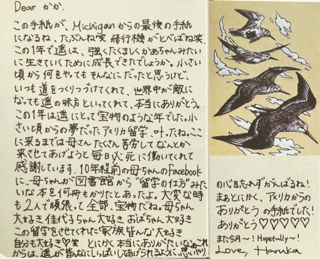 Dear かか.
この手紙が、Michiganからの最後の手紙
になるね、たぶんね笑 飛行機がとばねば笑
この1年で遥は、強くたくましくかあちゃんみたい
に生きていくために成長できたでしょうか。小さい
頃から何をやってもそんなにだったと思うけど、
いつも道をつくりつづけてくれて、世界中が敵に
なっても遥の味方といってくれて、本当にありがとう。
この1年は遥にとって宝物のような年でした。小
さい頃からの夢だったアメリカ留学、叶ったね。ここ
に来るまでは母さんたくさん苦労してなんとか
来させてあげようと毎日必死に働いてくれて
感謝しています。10年程前の母ちゃんのFacebook
に、母ちゃんが図書館から"留学の仕方"みたい
な本を何冊もかりたとあったよ。大変な時
も2人で頑張って全部、宝物だね。母ちゃん
大好き 佳代子ちゃん大好き おばちゃん大好き
この留学をさせてくれた家族皆な大好き
自分も大好き♡笑 とにかく本当にありがたいね、これ
からは、遥が皆なにしっぱいしてあげられるように、思いやり
の心をわすれずがんばるね!
まあとにかく、アメリカからの
ありがとう の手紙でした!
ありがとう♡♡♡♡♡
またSA〜! Hopefully〜!
Love, Haruka